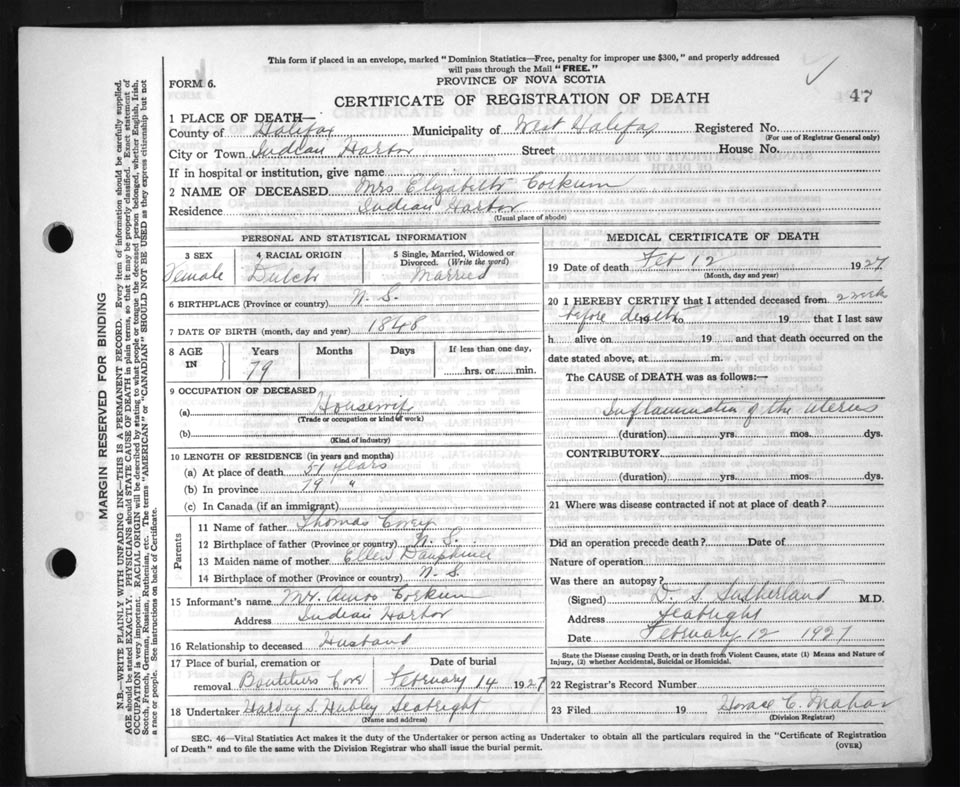 This form if placed in an envelope, marked "Dominion Statistics—Free, penalty for improper use $300," and properly addressed
will pass through the Mail "FREE."
FORM 6.
PROVINCE OF NOVA SCOTIA
CERTIFICATE OF REGISTRATION OF DEATH
47
1 PLACE OF DEATH—
County of Halifax Municipality of West Halifax Registered No.
(For use of Registrar General only)
City or Town Indian Harbor Street House No.
If in hospital or institution, give name
2 NAME OF DECEASED Mrs Elizabeth Corkum
Residence Indian Harbor
(Usual place of abode)
PERSONAL AND STATISTICAL INFORMATION
3 SEX 4 RACIAL ORIGIN 5 Single, Married, Widowed or
Divorced. (Write the word)
Female Dutch Married
6 BIRTHPLACE (Province or country) N. S.
7 DATE OF BIRTH (month, day and year) 1848
8 AGE IN Years Months Days If less than one day,
79 hrs. or min.
9 OCCUPATION OF DECEASED
(a) Housewife
(Trade or occupation or kind of work)
(b)
(Kind of industry)
10 LENGTH OF RESIDENCE (in years and months)
(a) At place of death 51 years
(b) In province 79 "
(c) In Canada (if an immigrant)
Parents
11 Name of father Thomas Covey
12 Birthplace of father (Province or country) N. S.
13 Maiden name of mother Ellen Dauphinee
14 Birthplace of mother (Province or country) N. S.
15 Informant's name Mr. Amos Corkum
Address Indian Harbor
16 Relationship to deceased Husband
17 Place of burial, cremation or Date of burial
removal Boutiliers Cove February 14 1927
18 Undertaker Harday S. Hubley Seabright
(Name and address)
MEDICAL CERTIFICATE OF DEATH
19 Date of death Feb 12 1927
(Month, day and year)
20 I HEREBY CERTIFY that I attended deceased from 2 week
before death 19 to 19 that I last saw
h alive on 19 and that death occurred on the
date stated above, at m.
The CAUSE of DEATH was as follows:—
Inflammation of the uterus
(duration) yrs. mos. dys.
CONTRIBUTORY
(duration) yrs. mos. dys.
21 Where was disease contracted if not at place of death?
Did an operation precede death? Date of
Nature of operation
Was there an autopsy?
(Signed) D. S. Sutherland M.D.
Address Seabright
Date February 12 1927
State the Disease causing Death, or in death from Violent Causes, state (1) Means and Nature of
Injury, (2) whether Accidental, Suicidal or Homicidal.
22 Registrar's Record Number
23 Filed 19 Horace C. Mahar
(Division Registrar)
SEC. 46—Vital Statistics Act makes it the duty of the Undertaker or person acting as Undertaker to obtain all the particulars required in the "Certificate of Registration
of Death" and to file the same with the Division Registrar who shall issue the burial permit.
(OVER)
MARGIN RESERVED FOR BINDING
N.B.—WRITE PLAINLY WITH UNFADING INK—THIS IS A PERMANENT RECORD. Every item of information should be carefully supplied.
AGE should be stated EXACTLY. PHYSICIANS should STATE CAUSE OF DEATH in plain terms, so that it may be properly classified. Exact statement of
OCCUPATION is very important. RACIAL ORIGIN will be described by stating to what people or tongue the deceased person belonged, whether English, Irish,
Scotch, French, German, Russian, Ruthenian, etc. The terms "AMERICAN" or "CANADIAN" SHOULD NOT BE USED as they express citizenship but not
a race or people. See instructions on back of Certificate.